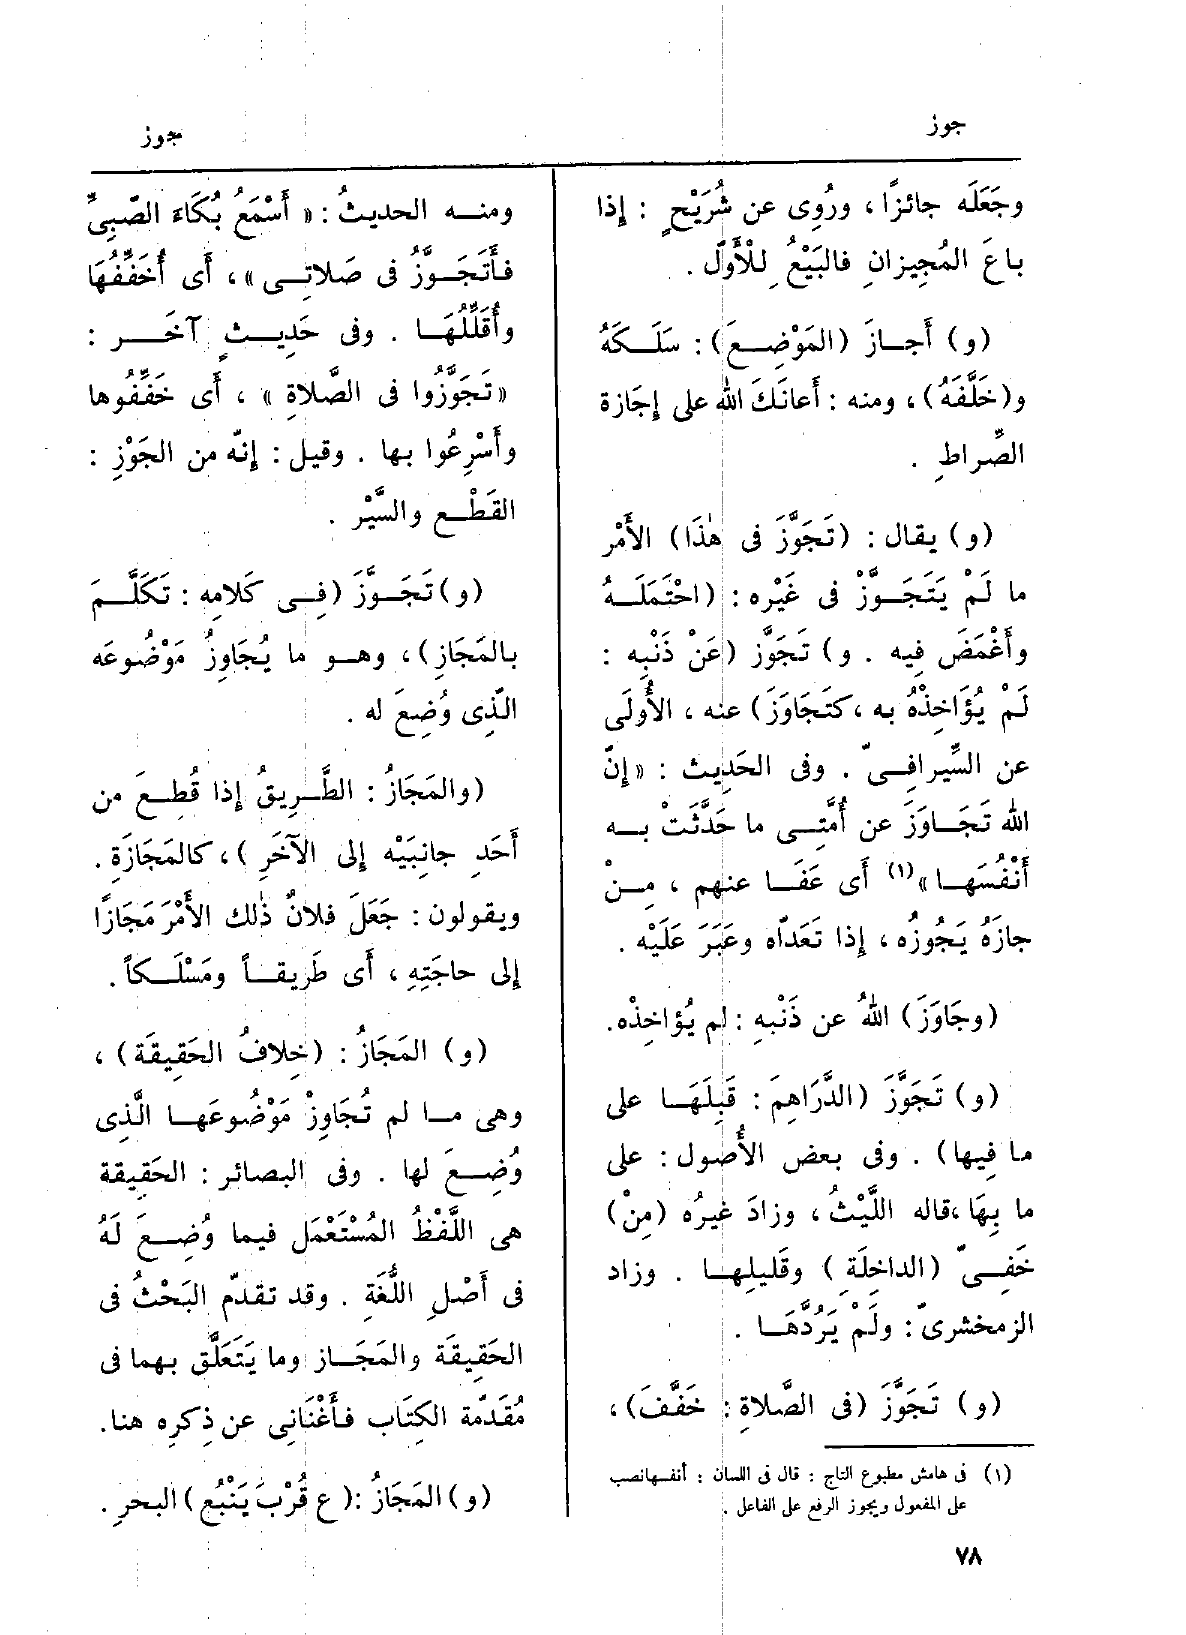 جوز
جوز
وجَعَلَه جائزًا ، ورُوِى عن شُرَيْحٍ : إذا
باعَ المُجِيزانِ فالبَيْعُ لِلْأَوّلِ .
(و) أَجـازَ (المَوْضِـعَ) : سَلَـكَهُ
و(خَلَّفَهُ) ، ومنه : أَعانَكَ اللهُ على إِجَازة
الصِّراطِ .
(و) يقال : (تَجَوَّزَ فى هٰذَا) الأَمْر
ما لَمْ يَتَجَوَّزْ فى غَيْرِه : (احْتَمَلَـهُ
وأَغْمَضَ فِيه . و) تَجَوَّز (عَنْ ذَنْبِه :
لَمْ يُؤَاخِذْهُ به ، كتَجَاوَزَ) عنه ، الأُولَى
عن السِّيرافِـىّ . وفى الحَدِيث : «إِنّ
الله تَجَـاوَزَ عن أُمَّتِـى ما حَدَّثَتْ بـه
أَنْفُسَهـا»(١) أَى عَفَـا عنهم ، مِـنْ
جازَهُ يَجُوزُه ، إِذا تَعَدّاه وعَبَرَ عَلَيْه .
(وجَاوَزَ) اللهُ عن ذَنْبِهِ : لم يُؤاخِذْه.
(و) تَجَوَّزَ (الدَّرَاهِمَ : قَبِلَهَـا على
ما فِيها) . وفى بعض الأُصول : على
ما بِهَا ،قاله اللَّيْثُ ، وزادَ غيرُه (مِنْ)
خَفِـىّ (الداخِلَةِ) وقَلِيلِهـا . وزاد
الزمخشرىّ : ولَمْ يَرُدَّهَـا .
(و) تَجَوَّزَ (فى الصَّلاةِ : خَفَّفَ) ،
(١) فى هامش مطبوع التاج : قال فى اللسان : أنفسهانصب
على المفعول ويجوز الرفع على الفاعل .
ومنـه الحديثُ : «أَسْمَعُ بُكَاءَ الصّبِىِّ
فأَتَجَـوَّزُ فى صَلاتِـى» ، أَى أُخَفِّفُهَا
وأُقَلِّلُهَـا . وفى حَدِيـثٍ آخَـر :
«تَجَوَّزُوا فى الصَّلاةِ» ، أَى خَفِّفُوها
وأَسْرِعُوا بها . وقيل : إِنّه من الجَوْزِ :
القَطْـع والسَّيْر .
(و)تَجَـوَّزَ (فِـى كَلامِه : تَكَلَّـمَ
بالمَجَازِ) ، وهـو ما يُجَاوِزُ مَوْضُوعَه
الّذِى وُضِعَ له .
(والمَجَازُ : الطَّـرِيقُ إِذا قُطِـعَ من
أَحَدِ جانِبَيْه إلى الآخَرِ) ، كالمَجَازَةِ .
ويقولون : جَعَلَ فلانٌ ذٰلك الأَمْرَ مَجَازًا
إلى حاجَتِهِ ، أَى طَرِيقـاً ومَسْلَـكاً .
(و) المَجَازُ : (خِلافُ الحَقِيقَة) ،
وهى مـا لم تُجَاوِزْ مَوْضُوعَهـا الَّذِى
وُضِـعَ لها . وفى البصائر : الحَقِيقة
هى اللَّفْظُ المُسْتَعْمَل فيما وُضِـعَ لَهُ
فى أَصْلِ اللُّغَةِ . وقد تقدّم البَحْثُ فى
الحَقِيقَة والمَجَـاز وما يَتَعَلَّق بهما فى
مُقَدّمة الكِتَاب فأَغْنَانِى عن ذِكرِه هنا.
(و) المَجَازُ : (ع قُرْبَ يَنْبُع) البحرِ .
٧٨